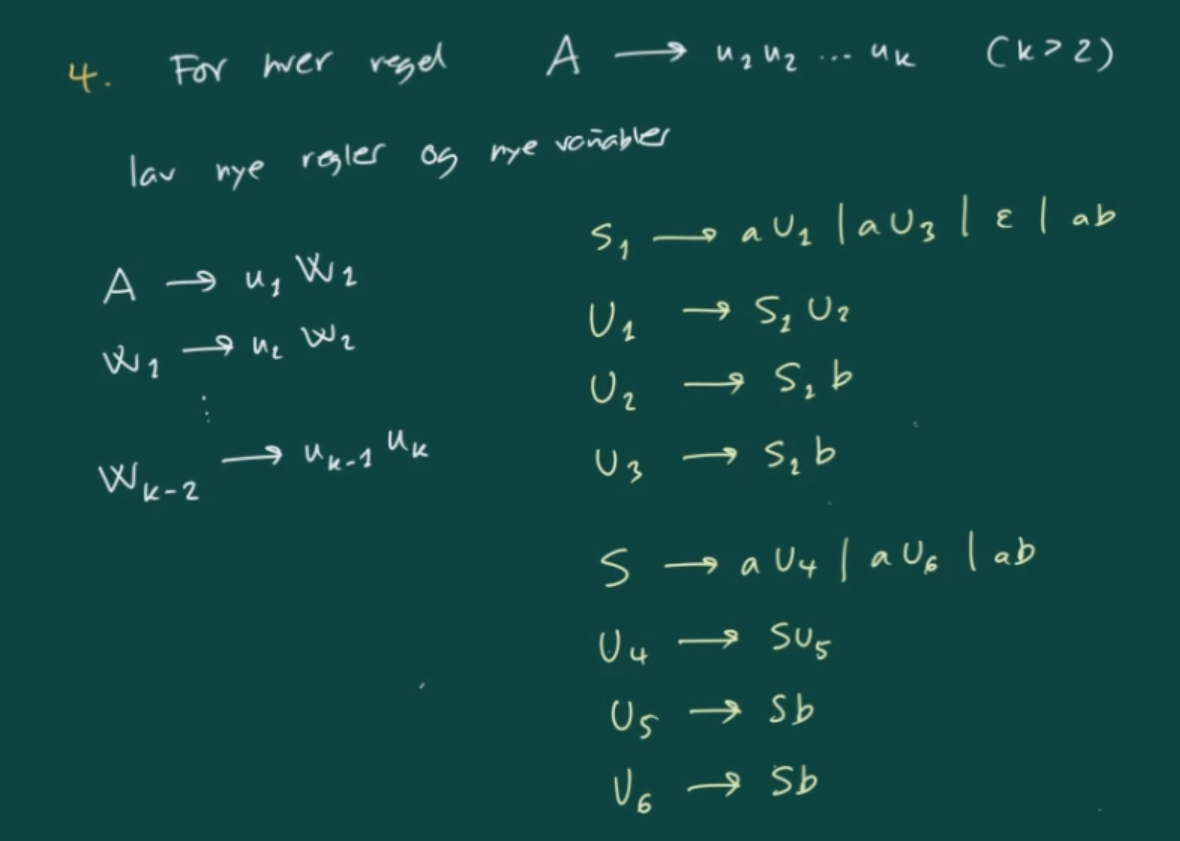 4. For hver regel A → u₁u₂ ... uₖ (k>2)
lav nye regler og nye variabler
A → u₁ W₁
W₁ → u₂ W₂
⋮
Wₖ₋₂ → uₖ₋₁ uₖ
S₁ → aU₁ | aU₃ | ε | ab
U₁ → S₁U₂
U₂ → S₁b
U₃ → S₁b
S → aU₄ | aU₆ | ab
U₄ → SU₅
U₅ → Sb
U₆ → Sb